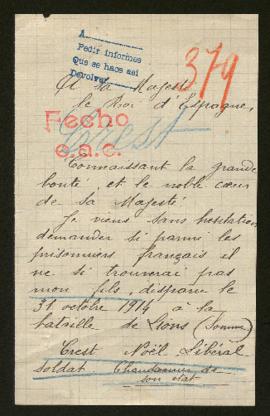 A
Pedir informes
Que se hace así
Devolver
379
A sa Majesté
le Roi d'Espagne,
Fecho
e.a.c.
Crest
Connaissant la grande
bonté, et le noble cœur
de sa Majesté
Je viens sans hesitation
demander si parmi les
prisonniers français il
ne si trouverai pas
mon fils, disparu le
31 octobre 1914 à la
bataille de Lions (Somme)
Crest Noël Libéral
soldat
son état